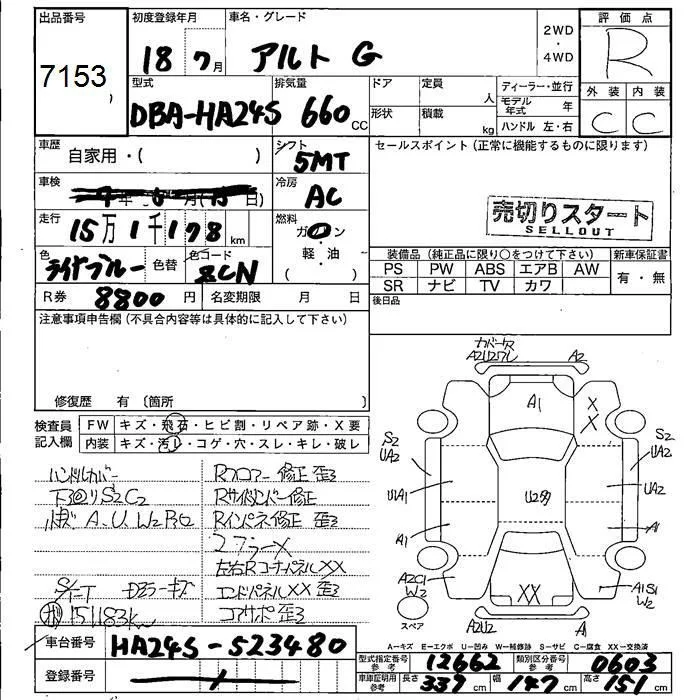 出品番号
7153
)
初度登録年月
18 7月
車名・グレード
アルト G
2WD
・
4WD
評価点
R
外装 内装
C C
型式
DBA-HA24S
排気量
660 CC
ドア
定員
人
形状
積載
kg
ディーラー・並行
モデル年式 年
ハンドル 左・右
車歴
自家用・( )
シフト
5MT
セールスポイント(正常に機能するものに限ります)
車検
年 月( 日)
冷房
AC
売切りスタート
SELLOUT
走行
15万1千178km
燃料
ガソリン
・
軽・油
( )
色
色替
色コード
ZCN
装備品(純正品に限り○をつけて下さい)
新車保証書
PS PW ABS エアB AW
SR ナビ TV カワ
有・無
R券
8800円
名変期限 月 日
後日品
注意事項申告欄(不具合内容等は具体的に記入して下さい)
修復歴 有(箇所 )
検査員
記入欄
FW キズ・飛石・ヒビ割・リペア跡・X要
内装 キズ・汚レ・コゲ・穴・スレ・キレ・破レ
ハンドルカバー
下回りS2C2
A.U W2
Rフロアー修正 歪3
Rサイドメンバー修正
Rインパネ修正 歪3
左右RコーナーパネルXX
エンドパネルXX歪3
コアサポ歪3
151183km
A2U2ワレ
A2
A1
X
X
S2
UA2
S2
UA2
U1A1
U2多
UA2
A1
A1
A2C1
W2
XX
A1S1
W2
スペア
A2U2
A1
A−キズ E−エクボ U−凹み W−補修跡 S−サビ C−腐食 XX−交換済
車台番号
HA24S-523480
登録番号
型式指定番号
参考
12662
類別区分番号
参考
0603
車庫証明用
参考
長さ 339cm 幅 147cm 高さ 151cm